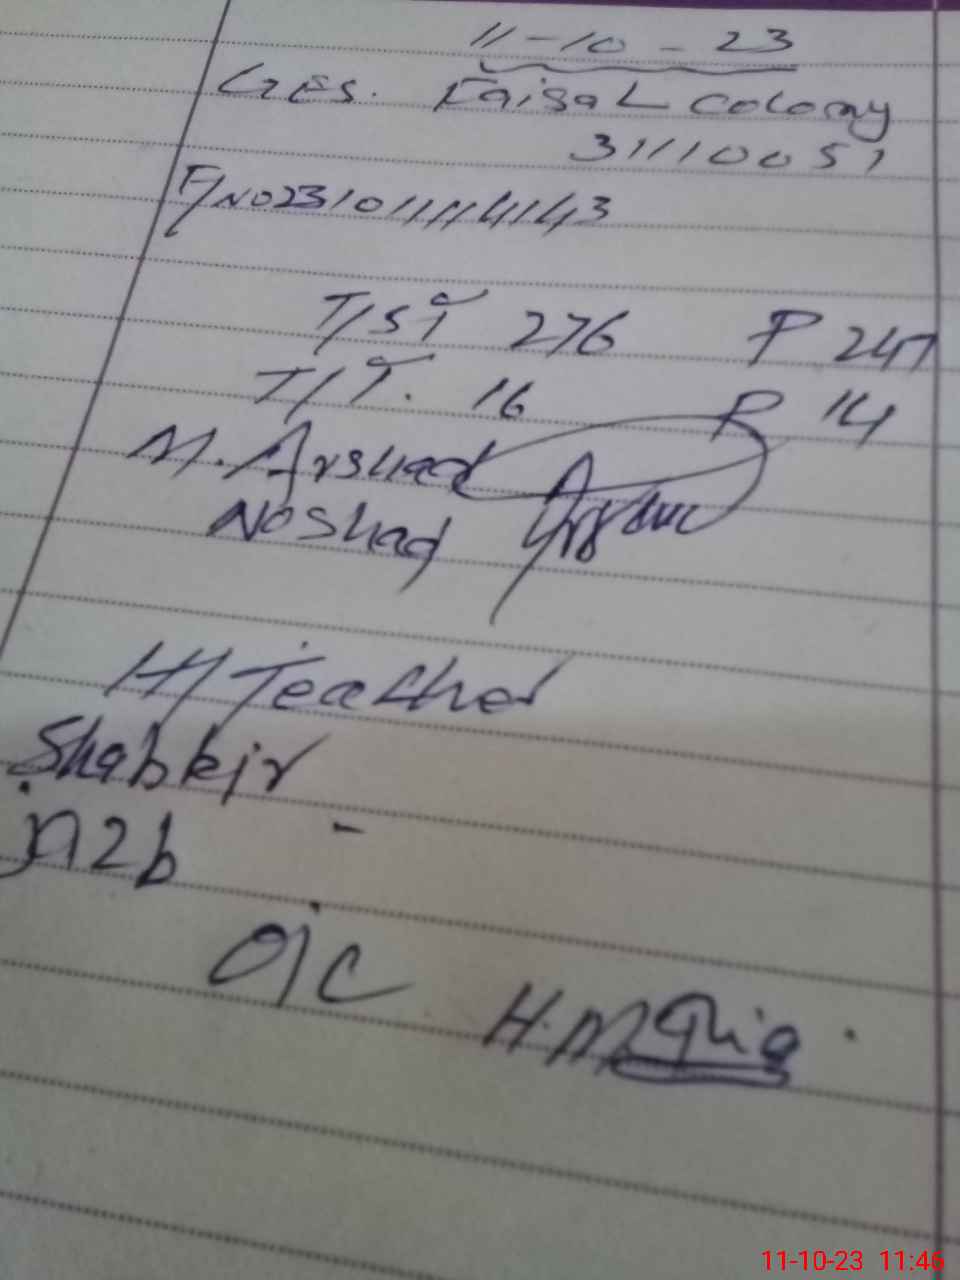 11-10-23
GES. Faisal colony
31110051
F/NO231011114143
T/ST 276 P 247
T/T. 16 P 14
M. Arshad
Noshad
H/Teacher
Shabbir
O/C H.M
11-10-23 11:46